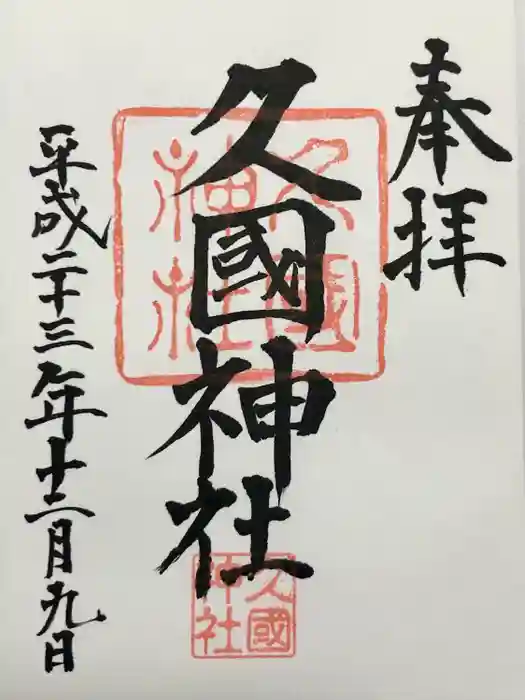 奉拝
久國神社
久國
神社
平成二十三年十二月九日
久國
神社